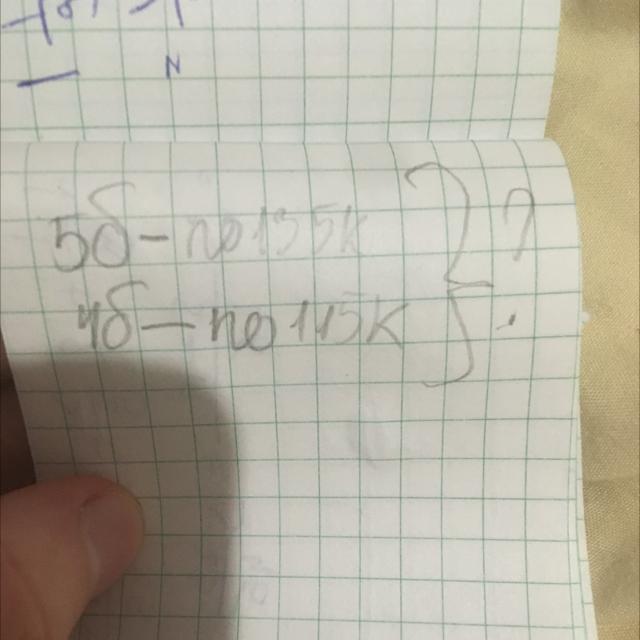 N
5б - по 135к } ?
4б - по 115к